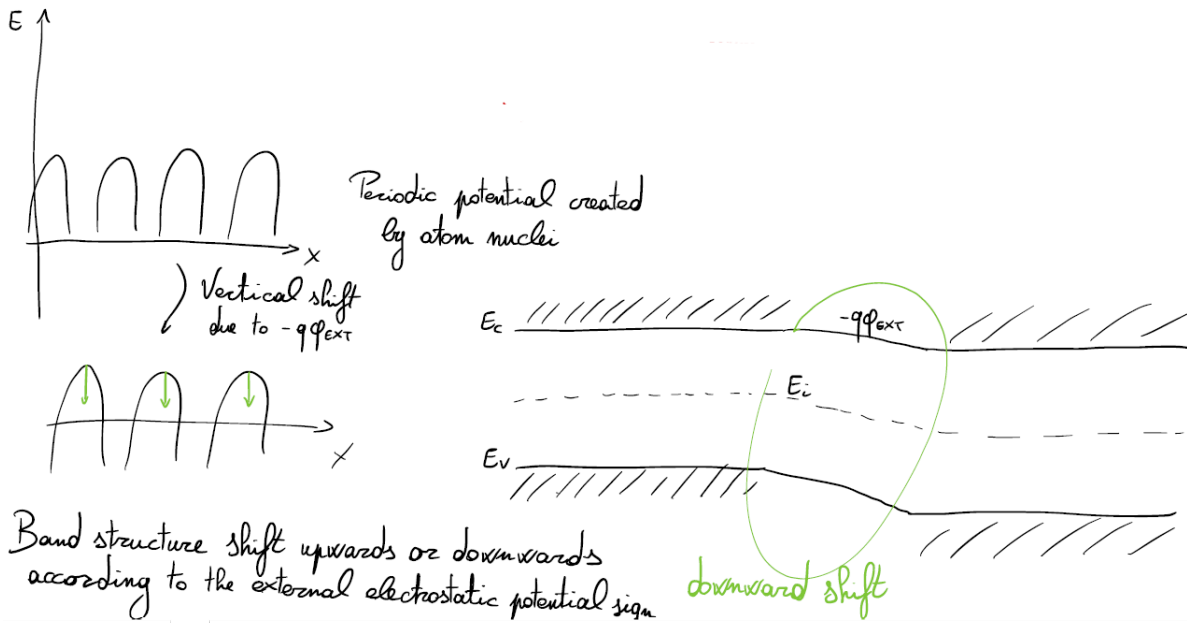 E
x
Periodic potential created
by atom nuclei
Vertical shift
due to -qφEXT
x
Ec
-qφEXT
Ei
Ev
Band structure shift upwards or downwards
according to the external electrostatic potential sign
downward shift